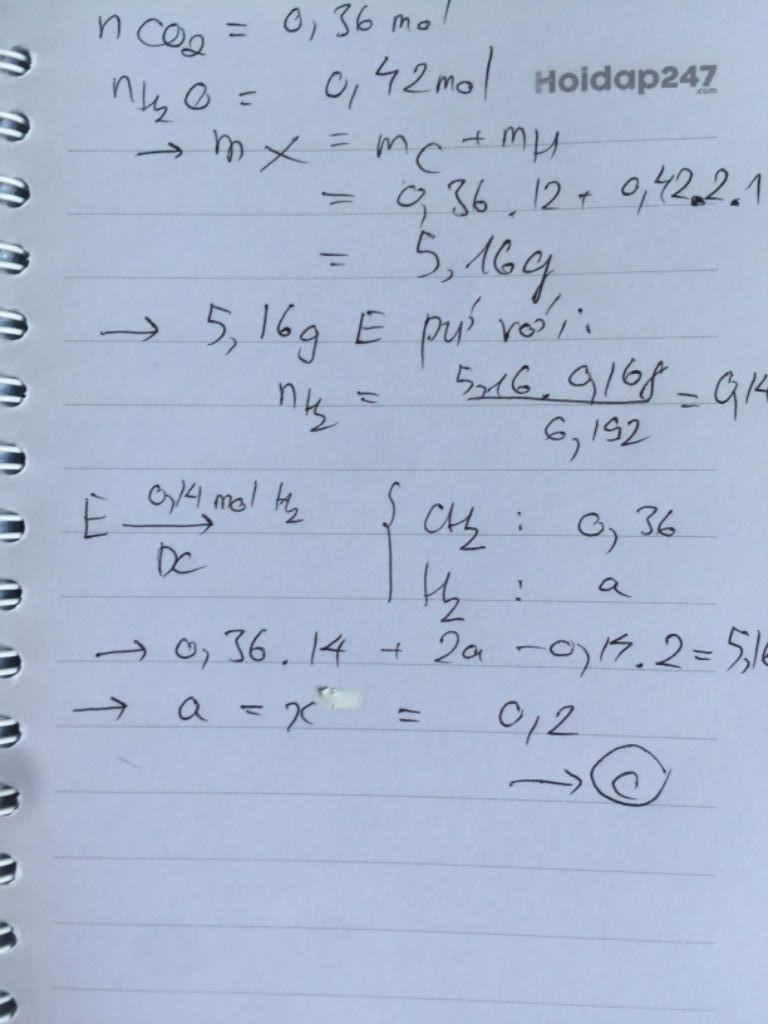 nCO₂ = 0,36 mol
nH₂O = 0,42 mol
Hoidap247
.com
→ mX = mC + mH
= 0,36.12 + 0,42.2.1
= 5,16g
→ 5,16g E pứ với:
nH₂ = 5,16.0,168/6,192 = 0,14
E 0,14 mol H₂ → { CH₂ : 0,36
H₂ : a
→ 0,36.14 + 2a - 0,14.2 = 5,16
→ a = x = 0,2
→ C